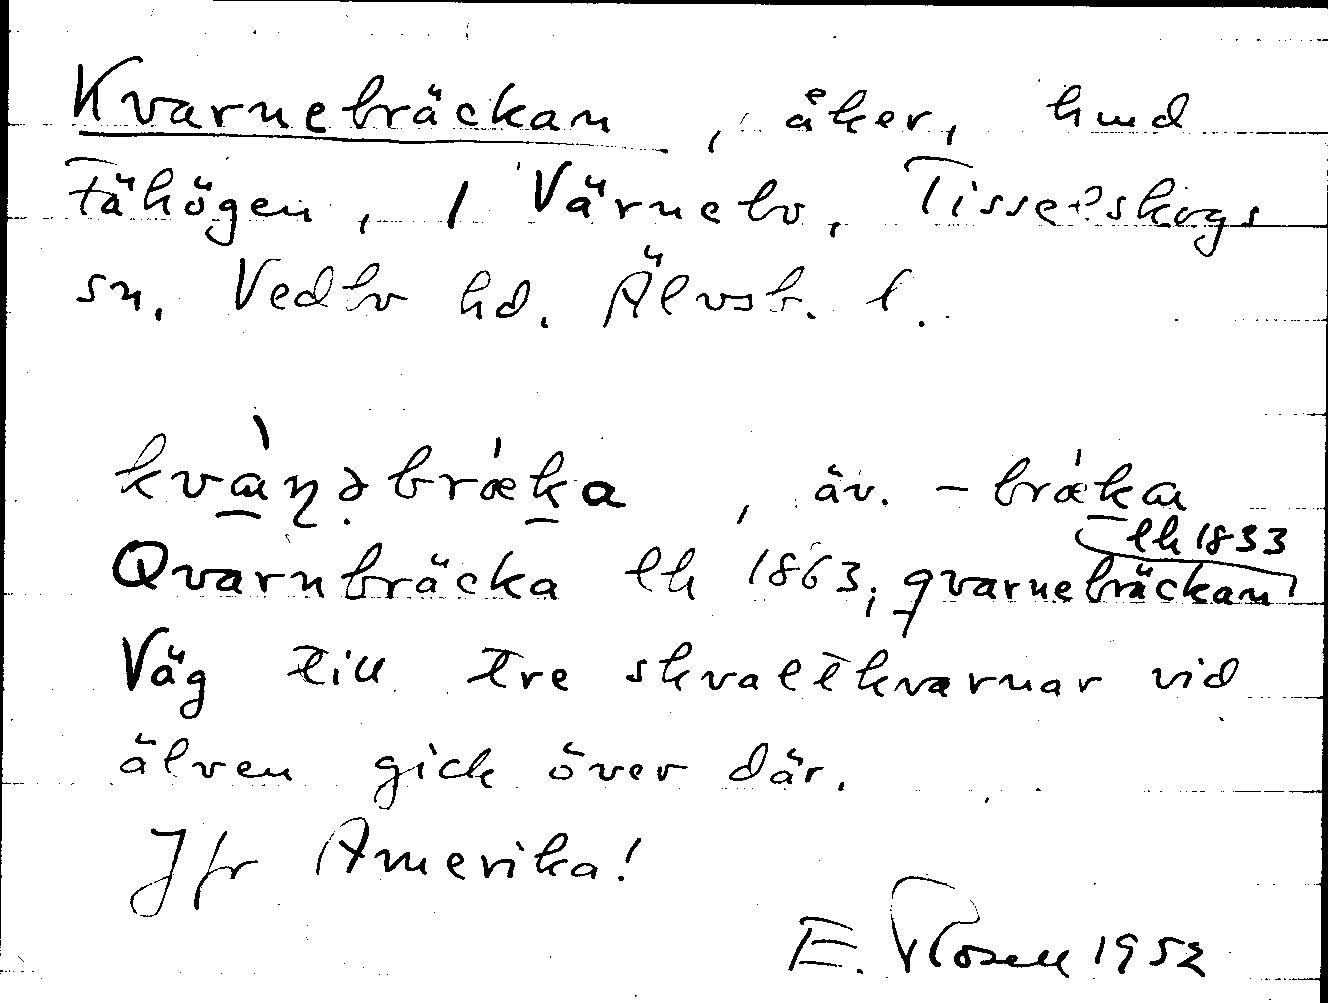 Kvarnebräckan, åker, hmd
Fähögen, 1 Värnebo, Tisselskogs
sn. Vedbo hd. Älvsb. l.
kvàṇəbrǽka, äv. -brǽka
lh 1833
Qvarnbräcka lh 1863; qvarnebräckan
Väg till tre skvaltkvarnar vid
älven gick över där.
Jfr Amerika!
E. Rosell 1952